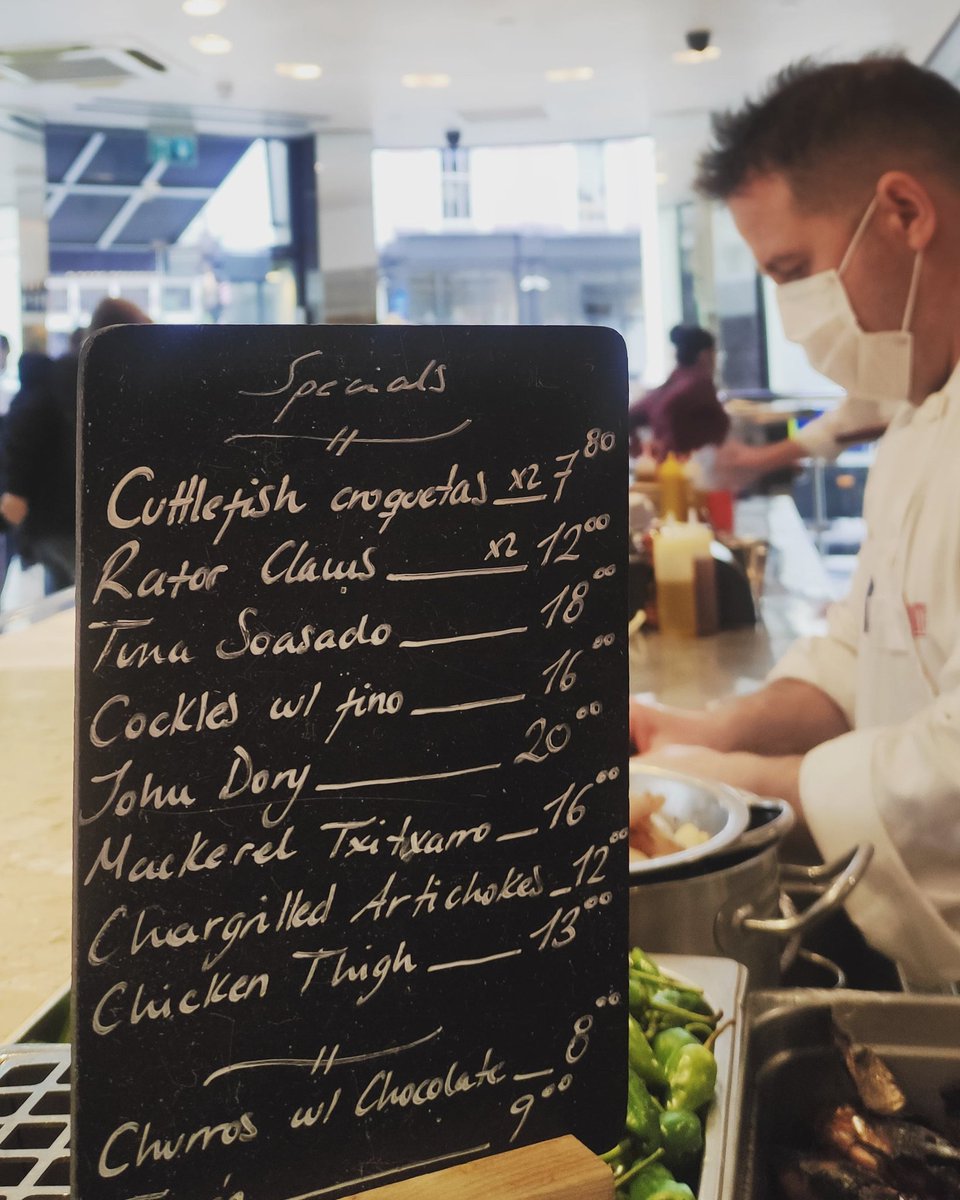 Specials
Cuttlefish croquetas x2 7 80
Rator Claws x2 12 00
Tuna Soasado 18 00
Cockles w/ fino 16 00
John Dory 20 00
Mackerel Txitxarro 16 00
Chargrilled Artichokes 12 00
Chicken Thigh 13 00
Churros w/ Chocolate 8 00
9 00